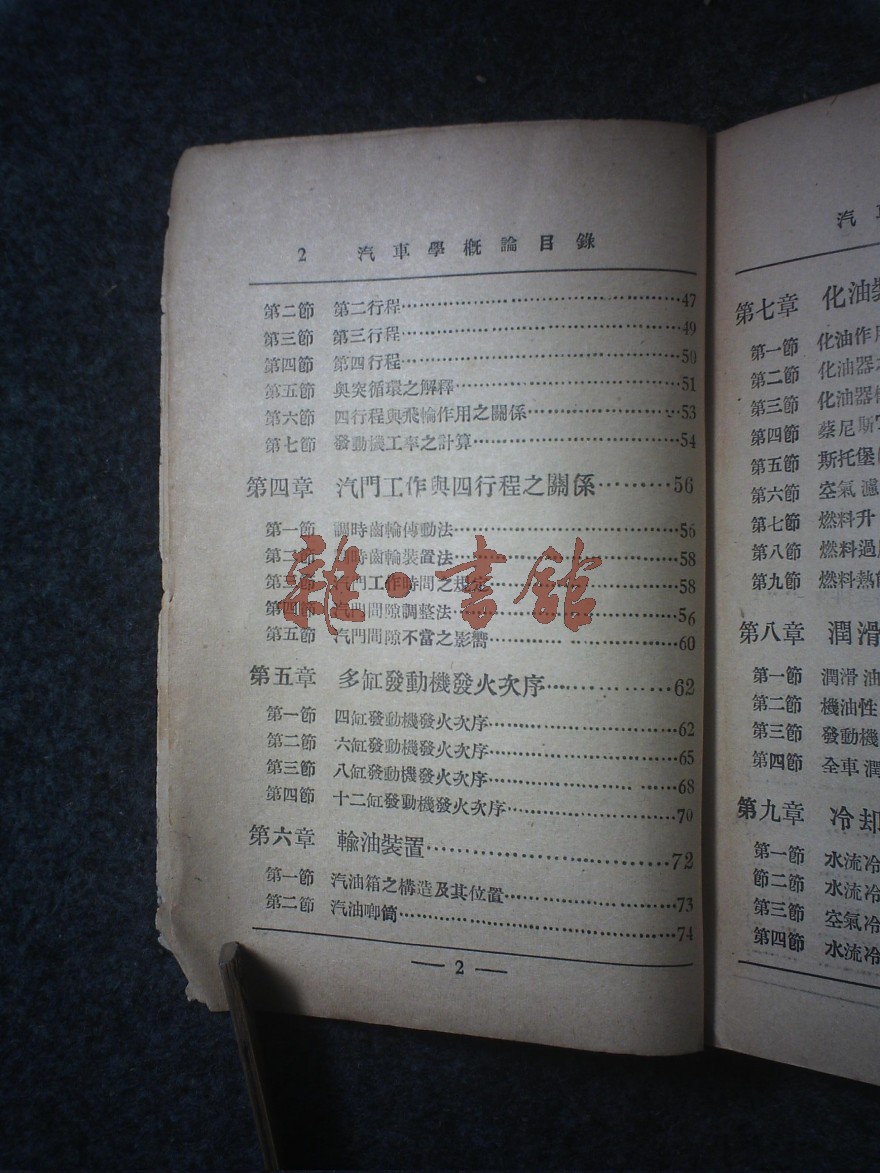 2 汽車學概論目錄
第二節 第二行程……47
第三節 第三行程……49
第四節 第四行程……50
第五節 奥突循環之解釋……51
第六節 四行程與飛輪作用之關係……53
第七節 發動機工率之計算……54
第四章 汽門工作與四行程之關係……56
第一節 調時齒輪傳動法……56
第二節 時齒輪裝置法……58
第三節 汽門工作時間之規定……58
第四節 汽門間隙調整法……56
第五節 汽門間隙不當之影響……60
第五章 多缸發動機發火次序……62
第一節 四缸發動機發火次序……62
第二節 六缸發動機發火次序……65
第三節 八缸發動機發火次序……68
第四節 十二缸發動機發火次序……70
第六章 輸油裝置……72
第一節 汽油箱之構造及其位置……73
第二節 汽油唧筒……74
— 2 —
雜·書館
汽車
第七章 化油裝
第一節 化油作用
第二節 化油器
第三節 化油器
第四節 蔡尼斯
第五節 斯托堡
第六節 空氣濾
第七節 燃料升
第八節 燃料過
第九節 燃料熱
第八章 潤滑
第一節 潤滑油
第二節 機油性
第三節 發動機
第四節 全車潤
第九章 冷却
第一節 水流冷
節二節 水流冷
第三節 空氣冷
第四節 水流冷